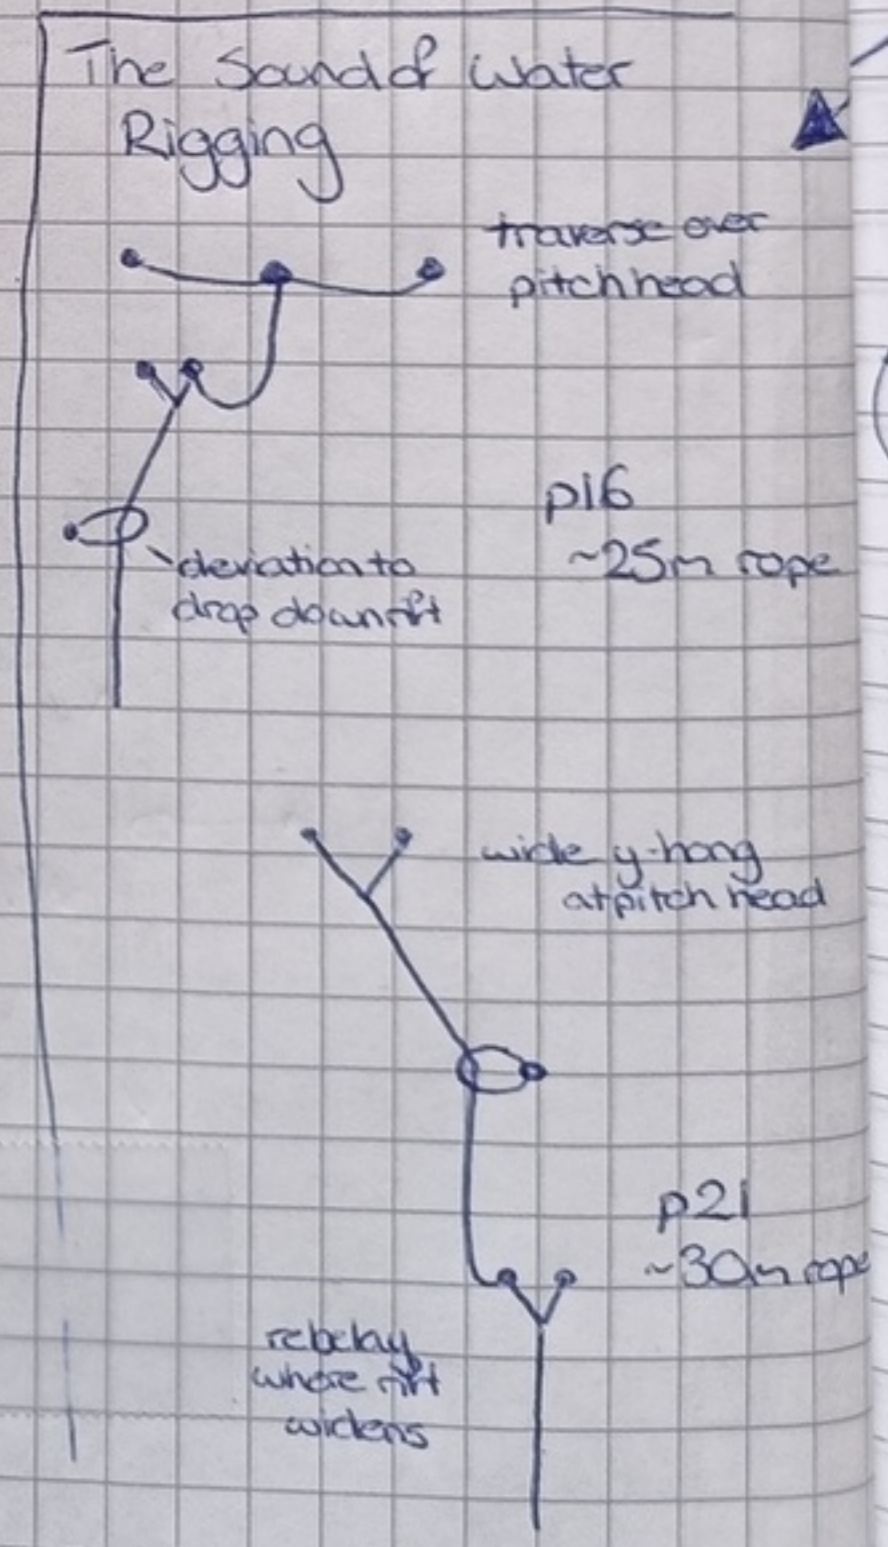 The Sound of Water
Rigging
traverse over
pitch head
p16
~25m rope
deviation to
drop down rift
wide y-hang
at pitch head
p21
~30m rope
rebelay
where rift
widens